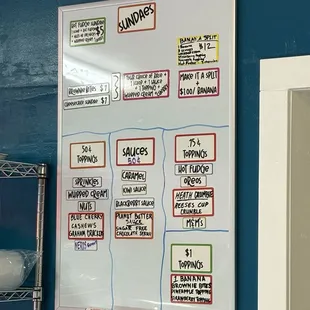 SUNDAES
HOT FUDGE SUNDAE
$5
BANANA SPLIT
$12
BROWNIE BITES $7
CHEESECAKE SUNDAE $7
YOUR CHOICE OF BASE +
1 SCOOP + 1 SAUCE
+ 1 TOPPING +
WHIPPED CREAM
MAKE IT A SPLIT
$1.00/ BANANA
50¢
TOPPINGS
SPRINKLES
WHIPPED CREAM
NUTS
BLUE CHERRY
CASHEWS
GRAHAM CRACKER
SAUCES
50¢
CARAMEL
KIWI SAUCE
BLACKBERRY SAUCE
PEANUT BUTTER
SAUCE
SUGAR FREE
CHOCOLATE
75¢
TOPPINGS
HOT FUDGE
OREOS
HEATH CRUMBLE
REESES CUP
CRUMBLE
M&M'S
$1
TOPPINGS
1 BANANA
BROWNIE BITES
PINEAPPLE TOPPING
STRAWBERRY TOPPING